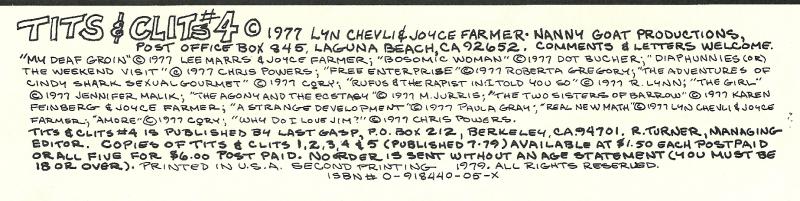 TITS & CLITS #4 © 1977 LYN CHEVLI & JOYCE FARMER· NANNY GOAT PRODUCTIONS,
POST OFFICE BOX 845, LAGUNA BEACH, CA 92652. COMMENTS & LETTERS WELCOME.
"MY DEAF GROIN" © 1977 LEE MARRS & JOYCE FARMER; "BOSOMIC WOMAN" © 1977 DOT BUCHER; "DIAPHUNNIES (OR)
THE WEEKEND VISIT" © 1977 CHRIS POWERS; "FREE ENTERPRISE" © 1977 ROBERTA GREGORY; "THE ADVENTURES OF
CINDY SHARK, SEXUAL GOURMET" © 1977 CORY; "RUFUS & THE RAPIST IN: I TOLD YOU SO" © 1977 R. LYNN; "THE GIRL"
© 1977 JENNIFER MALIK; "THE AGONY AND THE ECSTASY" © 1977 M. JURRIS; "THE TWO SISTERS OF BARROW" © 1977 KAREN
FEINBERG & JOYCE FARMER; "A STRANGE DEVELOPMENT" © 1977 PAULA GRAY; "REAL NEW MATH" © 1977 LYN CHEVLI & JOYCE
FARMER; "AMORE" © 1977 CORY; "WHY DO I LOVE JIM?" © 1977 CHRIS POWERS.
TITS & CLITS #4 IS PUBLISHED BY LAST GASP, P.O. BOX 212, BERKELEY, CA. 94701. R. TURNER, MANAGING
EDITOR. COPIES OF TITS & CLITS 1, 2, 3, 4 & 5 (PUBLISHED 7-79) AVAILABLE AT $1.50 EACH POSTPAID
OR ALL FIVE FOR $6.00 POST PAID. NO ORDER IS SENT WITHOUT AN AGE STATEMENT (YOU MUST BE
18 OR OVER). PRINTED IN U.S.A. SECOND PRINTING 1979. ALL RIGHTS RESERVED.
ISBN # 0-918440-05-X